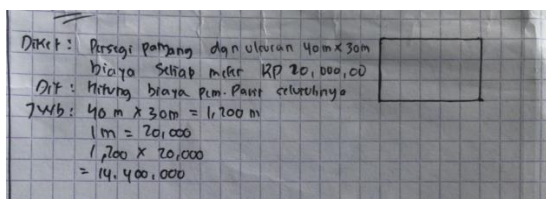 Diket : Persegi panjang dgn ukuran 40m x 30m
biaya Setiap meter RP 20,000,00
Dit : Hitung biaya pem. Pagar seluruhnya
Jwb : 40 m x 30m = 1,200 m
1m = 20,000
1,200 x 20,000
= 14.400,000